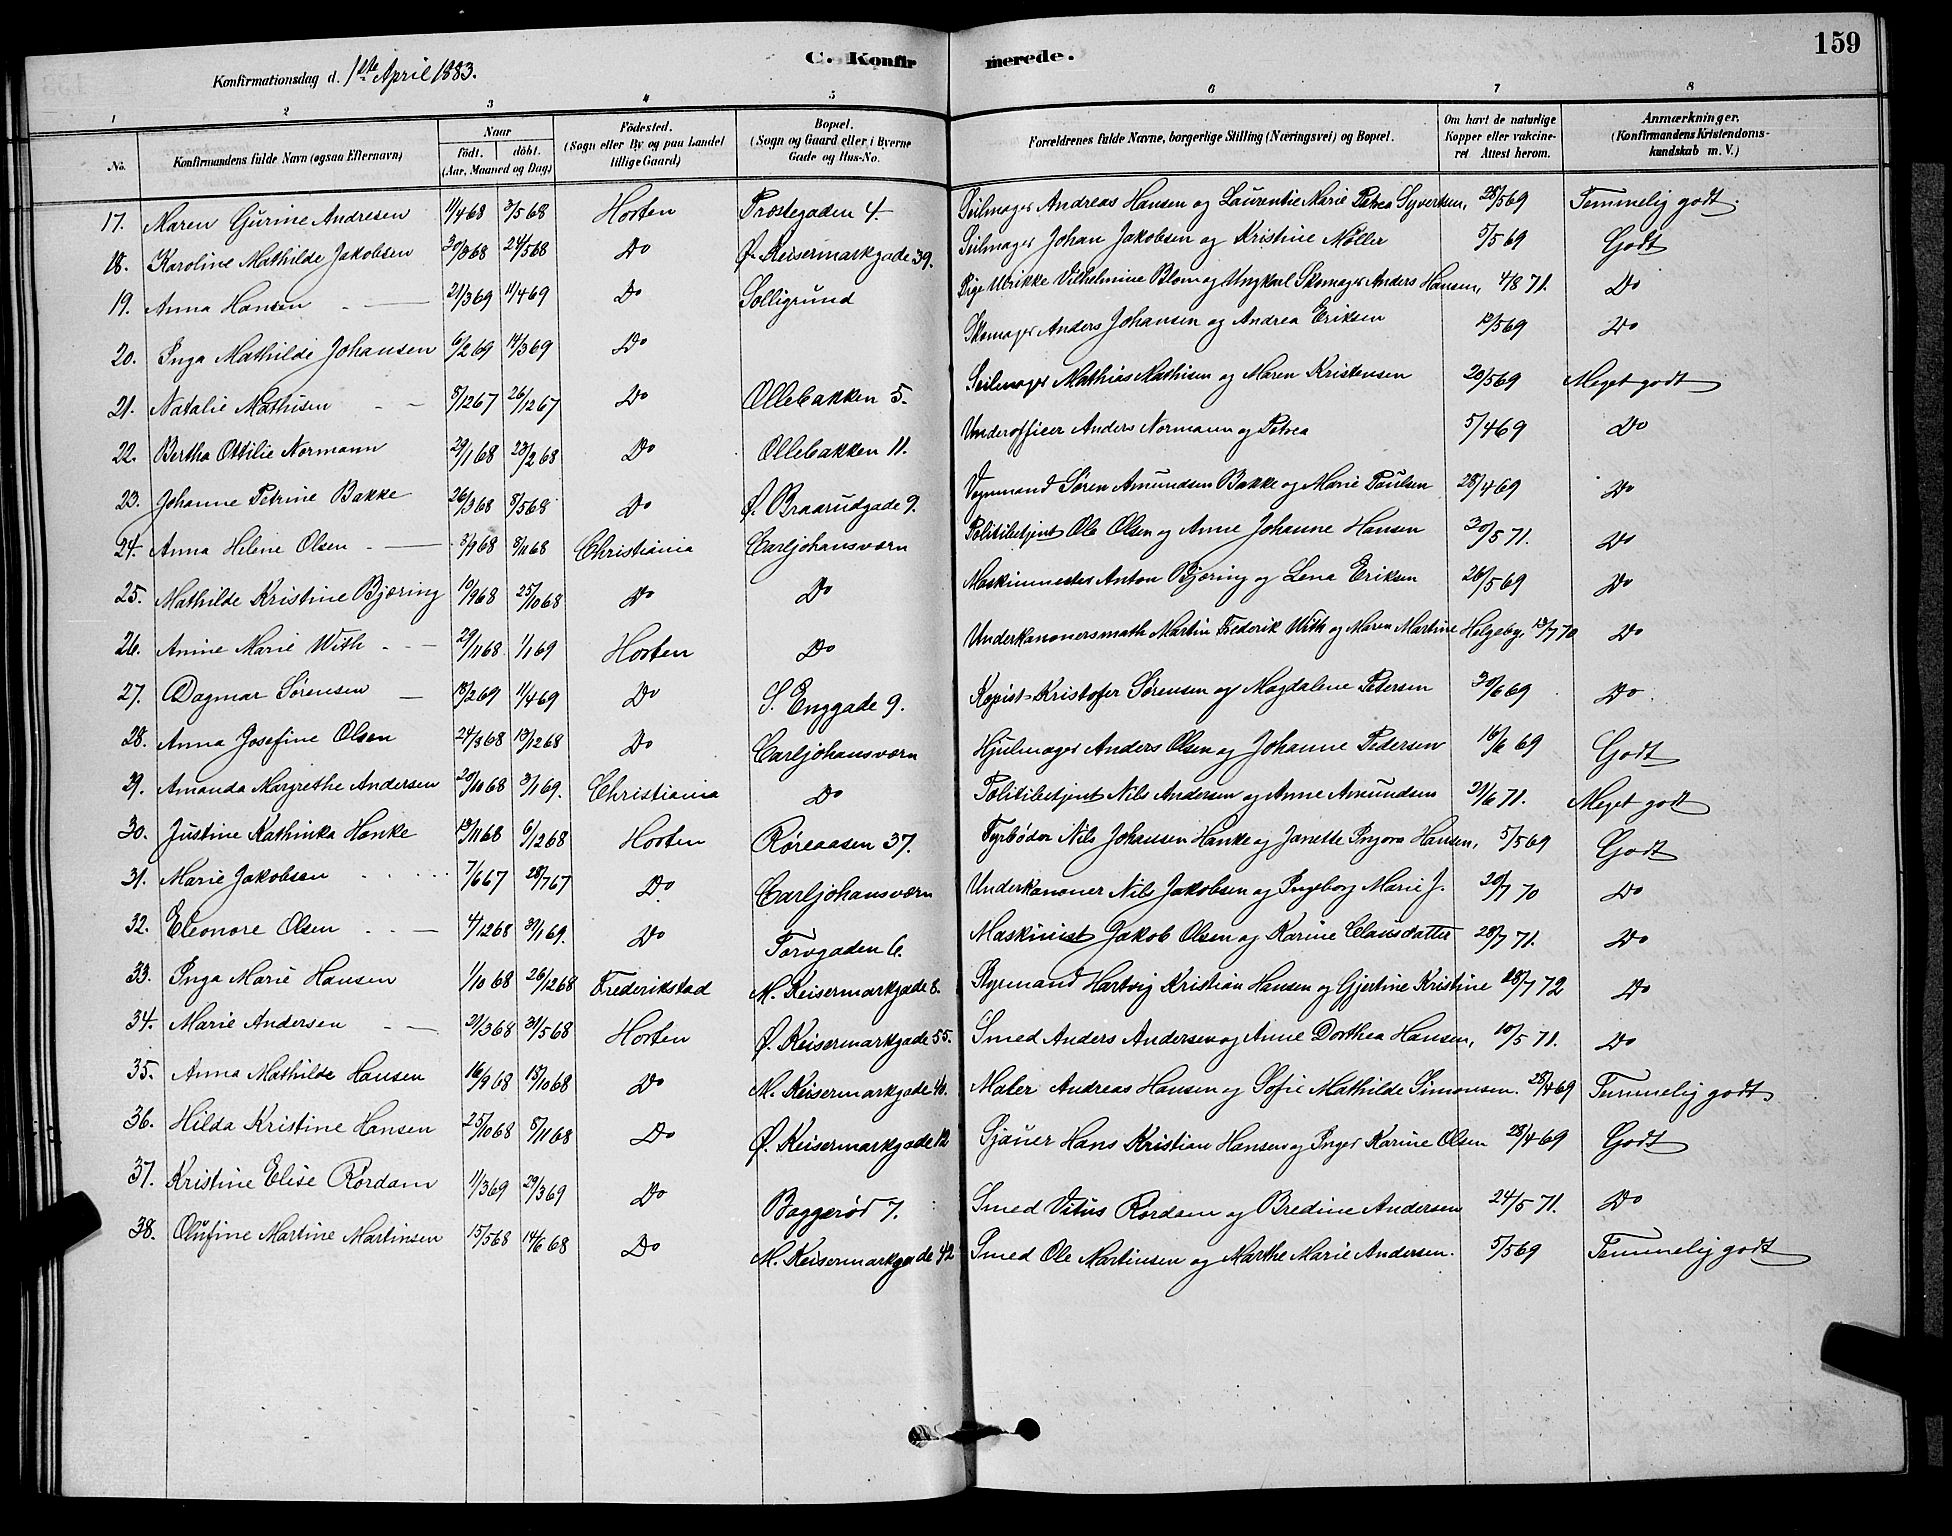 159
C. Konfirmerede.
Konfirmationsdag d. 1ste April 1883.
1 2 3 4 5 6 7 8
No. | Konfirmandens fulde Navn (ogsaa Efternavn) | Naar födt. döbt. (Aar, Maaned og Dag) | Födested. (Sogn eller By og paa Landet tillige Gaard) | Bopæl. (Sogn og Gaard eller i Byerne Gade og Hus-No. | Forældrenes fulde Navne, borgerlige Stilling (Næringsvei) og Bopæl. | Om havt de naturlige Kopper eller vakcineret. Attest herom. | Anmærkninger. (Konfirmandens Kristendomskundskab m. V.)
17. Maren Gurine Andresen 1/4 68 3/5 68 Horten Prostegaden 4. Seilmager Andreas Hansen og Laurentie Marie Petrea Syvertsen, 28/5 69 Temmelig godt.
18. Karoline Mathilde Jakobsen 30/3 68 24/5 68 Do Ø. Keisermarkgade 39. Seilmager Johan Jakobsen og Kristine Møller 5/5 69 Godt
19. Anna Hansen 21/3 69 11/4 69 Do Solligrund Pige Ulrikke Vilhelmine Blom og Ungkarl Skomager Anders Hansen, 4/8 71. Do
20. Inga Mathilde Johansen 6/2 69 14/3 69 Do Skomager Anders Johansen og Andrea Eriksen 12/5 69 Do
21. Natalie Mathisen 8/12 67 26/12 67 Do Ollebakken 5. Seilmager Mathias Mathisen og Maren Kristensen 20/5 69 Meget godt
22. Bertha Ottilie Normann 29/1 68 23/2 68 Do Ollebakken 11. Underofficer Anders Normann og Petrea 5/4 69 Do
23. Johanne Petrine Bakke 26/3 68 8/5 68 Do Ø. Braarudgade 9. Vognmand Søren Amundsen Bakke og Marie Paulsen 28/4 69 Do
24. Anna Helene Olsen 3/9 68 8/11 68 Christiania Carljohansværn Politibetjent Ole Olsen og Anne Johanne Hansen 30/5 71. Do
25. Mathilde Kristine Bjæring 10/9 68 25/10 68 Do Do Maskinmester Anton Bjæring og Lena Eriksen 26/5 69 Do
26. Anine Marie With 29/11 68 1/1 69 Horten Do Underkanonersmath Martin Frederik With og Maren Martine Helgeby, 13/7 70 Do
27. Dagmar Sørensen 18/2 69 11/4 69 Do S. Enggade 9. Kopist Kristofer Sørensen og Magdalene Petersen 30/6 69 Do
28. Anna Josefine Olsen 24/8 68 13/12 68 Do Carljohansværn Hjulmager Anders Olsen og Johanne Pedersen 16/6 69 Godt
29. Amanda Margrethe Andersen 20/10 68 3/1 69. Christiania Do Politibetjent Nils Andersen og Anne Amundsen 21/6 71. Meget godt
30. Justine Kathinka Hanke 13/11 68 6/12 68 Horten Røreaasen 37. Fyrbøder Nils Johansen Hanke og Janette Ingora Hansen, 5/5 69 Godt
31. Marie Jakobsen 7/6 67 28/7 67 Do Carljohansværn Underkanoner Nils Jakobsen og Ingeborg Marie J. 20/7 70 Do
32. Eleonore Olsen 4/12 68 31/1 69. Do Torvgaden 6. Maskinist Jakob Olsen og Karine Clausdatter 28/7 71. Do
33. Inga Marie Hansen 1/10 68 26/12 68 Frederikstad M. Keisermarkgade 8. Styrmand Hartvig Kristian Hansen og Gjertine Kristine 18/7 72 Do
34. Marie Andersen 21/3 68 31/5 68 Horten Ø. Keisermarkgade 55. Smed Anders Andersen og Anne Dorthea Hansen, 10/5 71. Do
35. Anna Mathilde Hansen 16/9 68 18/10 68 Do M. Keisermarkgade 40. Maler Andreas Hansen og Sofie Mathilde Simonsen. 28/4 69 Temmelig godt
36. Hilda Kristine Hansen 25/10 68 8/11 68 Do Ø. Keisermarkgade 12 Sjauer Hans Kristian Hansen og Inger Karine Olsen 28/4 69 Godt
37. Kristine Elise Rørdam 11/3 69 29/3 69 Do Baggerød 7. Smed Vitus Rørdam og Bredine Andersen 24/5 71. Do
38. Olufine Martine Martinsen 15/5 68 14/6 68 Do M. Keisermarkgade 42 Smed Ole Martinsen og Marthe Marie Andersen. 5/5 69 Temmelig godt